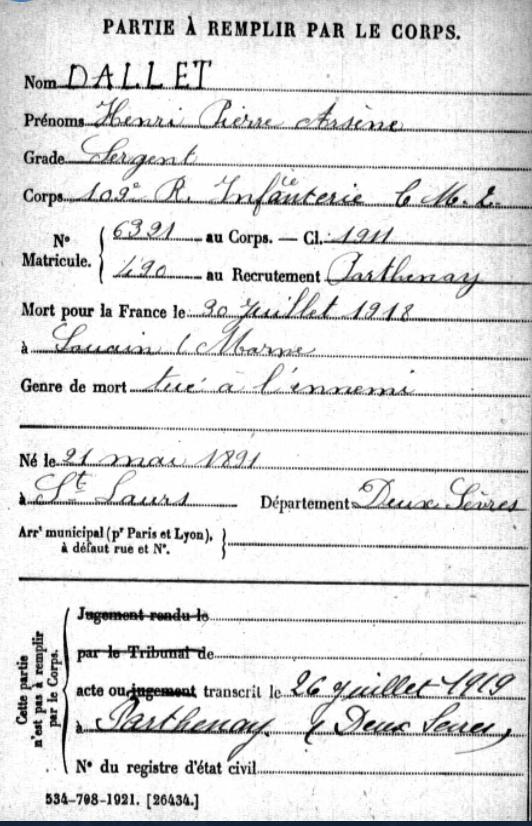 PARTIE À REMPLIR PAR LE CORPS.
Nom DALLET
Prénoms Henri Pierre Arsène
Grade Sergent
Corps 109e R. Infanterie
No Matricule. 6391 au Corps. — Cl. 1911
490 au Recrutement Parthenay
Mort pour la France le 20 Juillet 1918
à Souain (Marne
Genre de mort tué à l'ennemi
Né le 21 mai 1891
à St Laurs Département Deux Sèvres
Arrt municipal (pr Paris et Lyon),
à défaut rue et No.
Cette partie n'est pas à remplir par le Corps.
Jugement rendu le
par le Tribunal de
acte ou jugement transcrit le 26 juillet 1919
à Parthenay (Deux Sevres)
No du registre d'état civil
534-708-1921. [26434.]